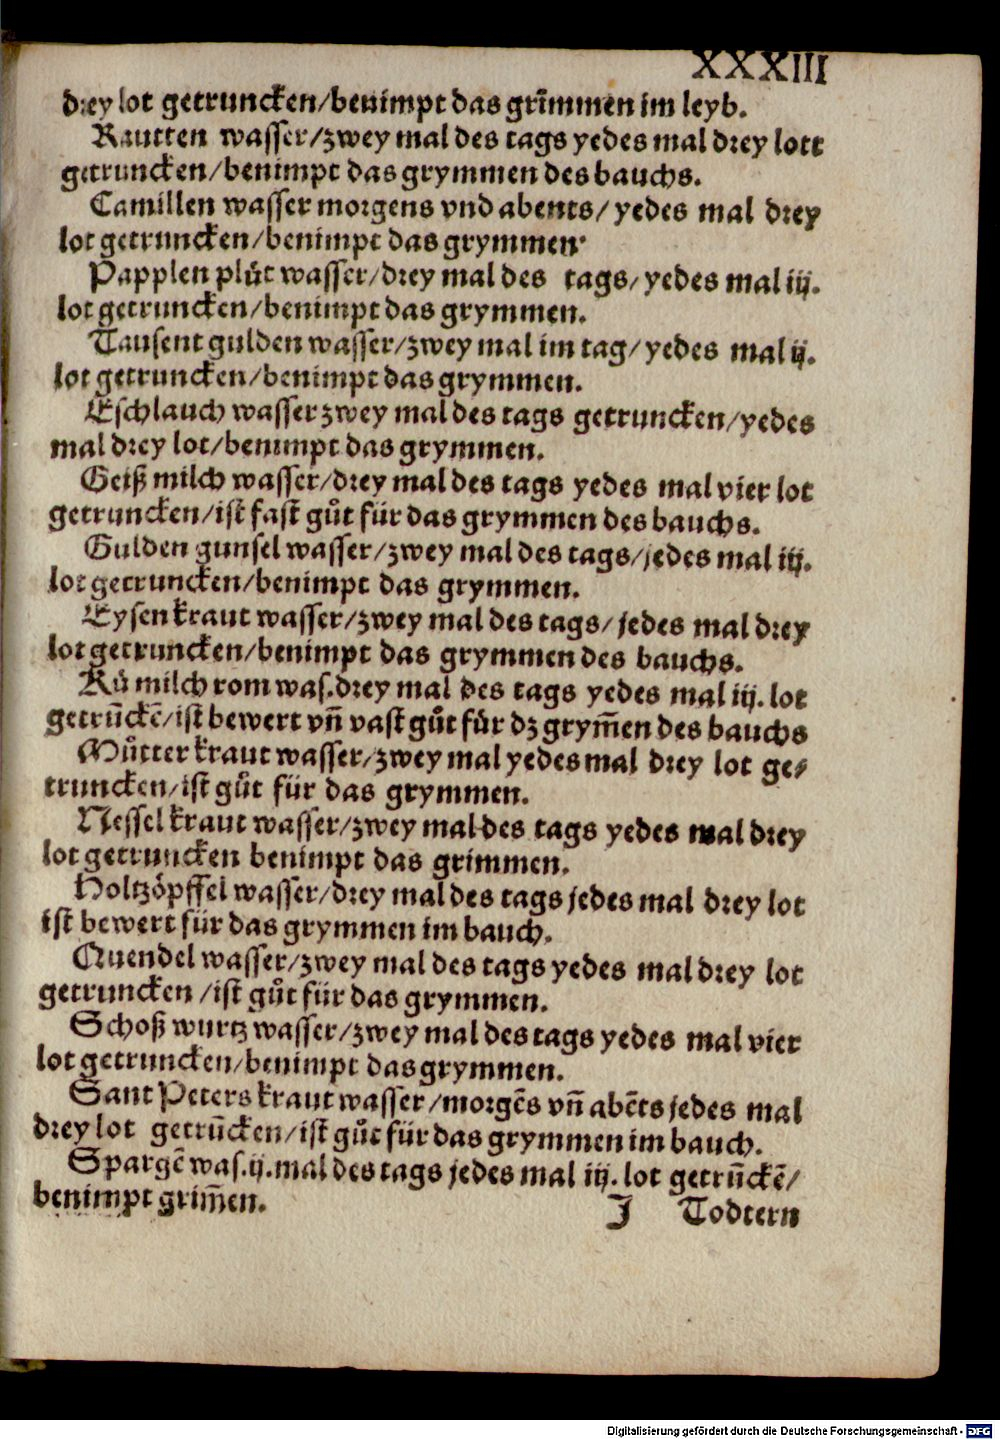 XXXIII
drey lot getruncken/benimpt das grimmen im leyb.
Rautten wasser/zwey mal des tags yedes mal drey lott
getruncken/benimpt das grymmen des bauchs.
Camillen wasser morgens vnd abents/ yedes mal drey
lot getruncken/benimpt das grymmen.
Papplen plůt wasser/drey mal des tags/ yedes mal iij.
lot getruncken/benimpt das grymmen.
Tausent gulden wasser/zwey mal im tag/ yedes mal ij.
lot getruncken/benimpt das grymmen.
Eschlauch wasser zwey mal des tags getruncken/yedes
mal drey lot/benimpt das grymmen.
Geiß milch wasser/drey mal des tags yedes mal vier lot
getruncken/ist fast gůt für das grymmen des bauchs.
Gulden gunsel wasser/zwey mal des tags/jedes mal iij.
lot getruncken/benimpt das grymmen.
Eysenkraut wasser/zwey mal des tags/ jedes mal drey
lot getruncken/benimpt das grymmen des bauchs.
Ků milch rom was.drey mal des tags yedes mal iij. lot
getrūckē/ist bewert vñ vast gůt für dz grym̃en des bauchs
Můtter kraut wasser/zwey mal yedes mal drey lot ge⸗
truncken/ist gůt für das grymmen.
Nessel kraut wasser/zwey mal des tags yedes mal drey
lot getruncken benimpt das grimmen.
Holtzöpffel wasser/drey mal des tags jedes mal drey lot
ist bewert für das grymmen im bauch.
Quendel wasser/zwey mal des tags yedes mal drey lot
getruncken /ist gůt für das grymmen.
Schoß wurtz wasser/zwey mal des tags yedes mal vier
lot getruncken/benimpt das grymmen.
Sant Peters kraut wasser/morgēs vñ abēts jedes mal
drey lot getrūcken/ist gůt für das grymmen im bauch.
Spargē was.ij.mal des tags jedes mal iij. lot getrūckē/
benimpt grim̃en.
J Todtern
Digitalisierung gefördert durch die Deutsche Forschungsgemeinschaft - DFG